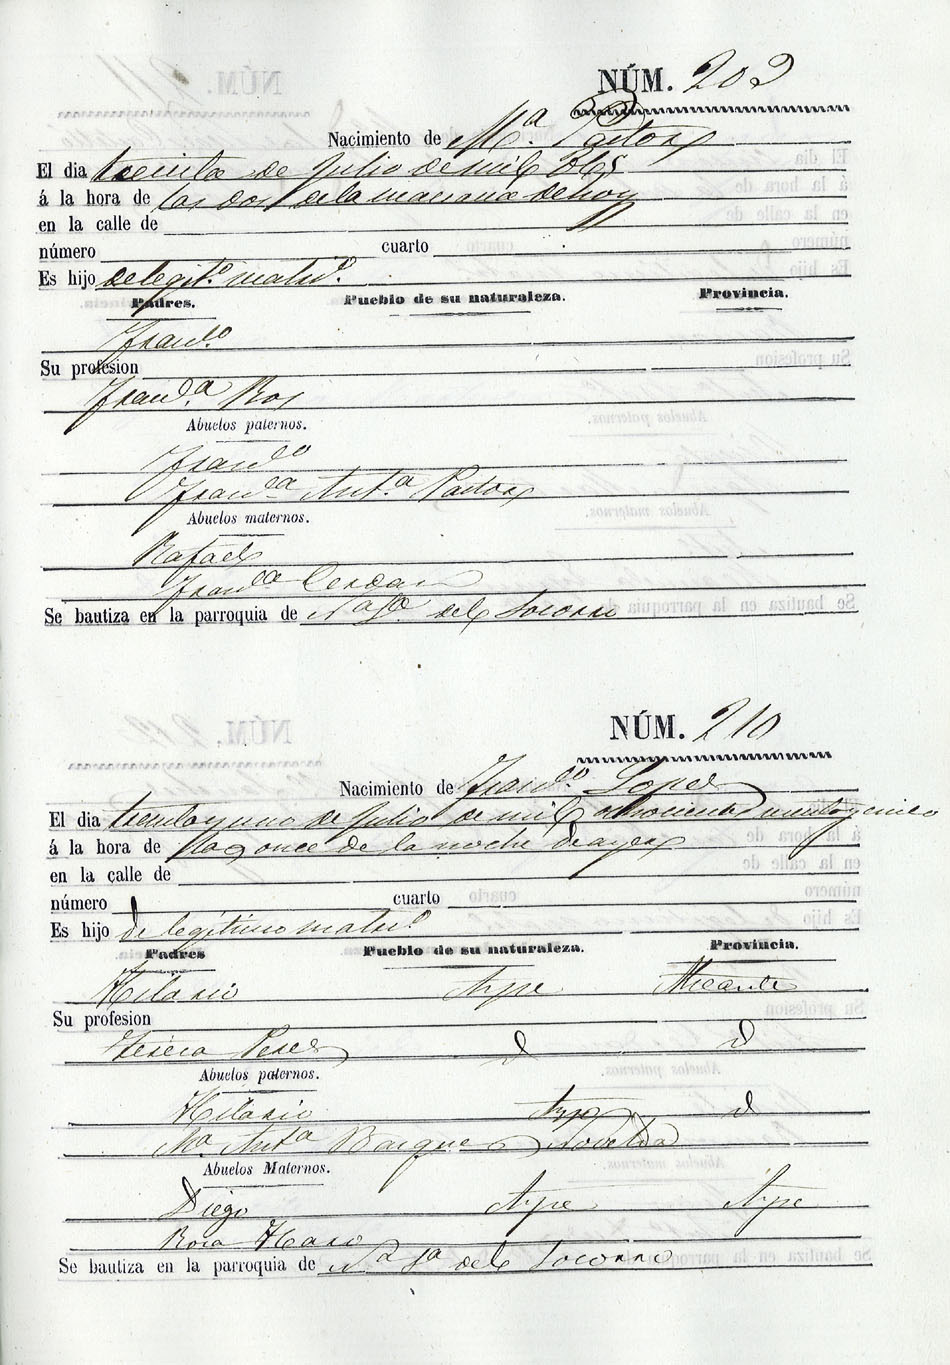 NÚM. 209
Nacimiento de Mª Pastor
El dia treinta de Julio de mil 865
á la hora de las dos de la mañana de hoy
en la calle de
número cuarto
Es hijo de legitº matrº
Padres. Pueblo de su naturaleza. Provincia.
Francº
Su profesion
Francª Ros
Abuelos paternos.
Francº
Francª Antª Pastor
Abuelos maternos.
Rafael
Francª Cerdan
Se bautiza en la parroquia de Nª Sª del Socorro
NÚM. 210
Nacimiento de Francº Lopez
El dia treinta y uno de Julio de mil ochocientos y cinco
á la hora de las once de la noche de ayer
en la calle de
número cuarto
Es hijo de legítimo matrº
Padres Pueblo de su naturaleza. Provincia.
Hilario Aspe Alicante
Su profesion
Teresa Perez d d
Abuelos paternos.
Hilario Aspe d
Mª Antª Novelda
Abuelos Maternos.
Diego Aspe Aspe
Rosa
Se bautiza en la parroquia de Nª Sª del Socorro